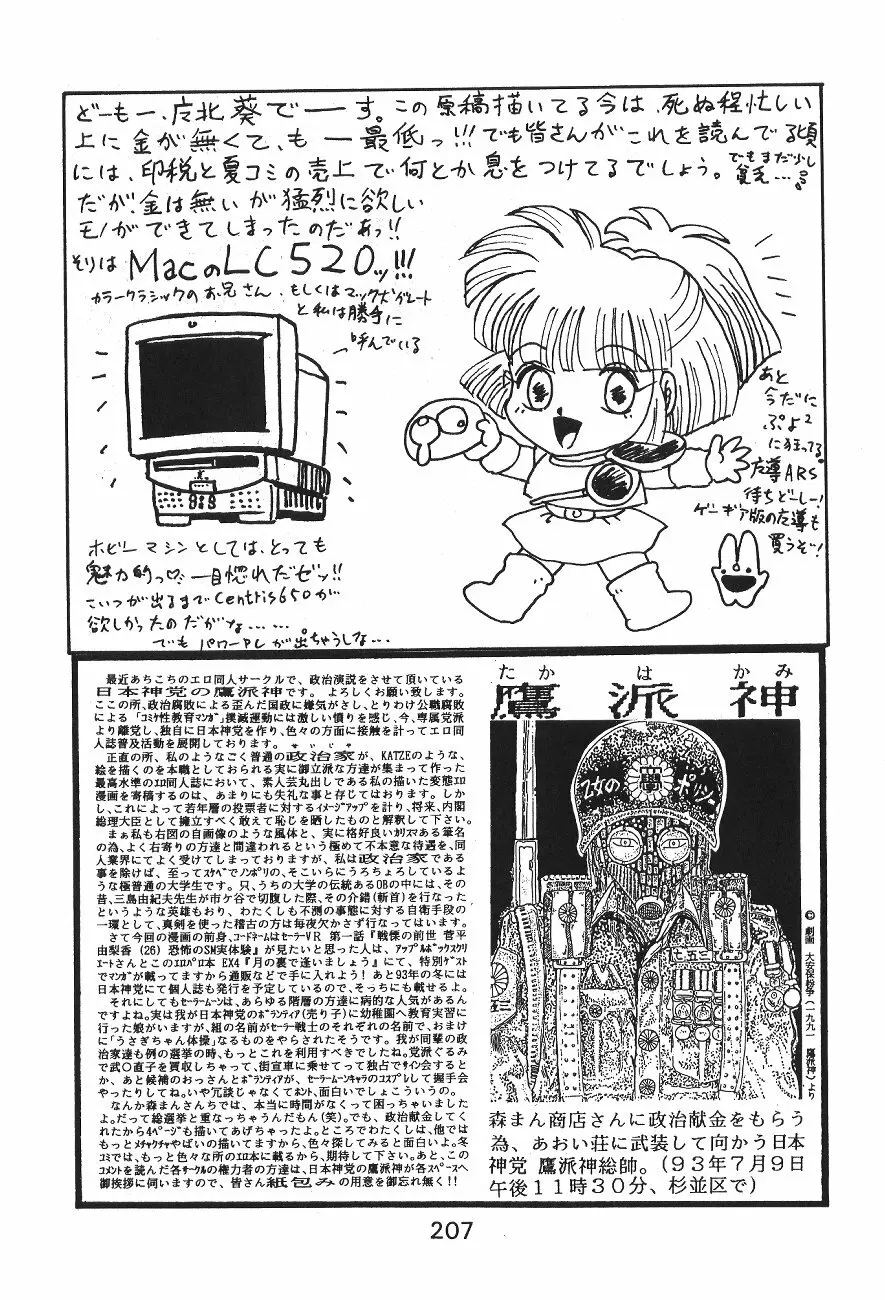 どーもー、戸北葵でーす。この原稿描いてる今は、死ぬ程忙しい
上に金が無くて、も一最低っ!!!でも皆さんがこれを読んでる頃
には、印税と夏コミの売上で何とか息をつけてるでしょう。でもまだ少し貧乏…
だが、金は無いが猛烈に欲しい
モノができてしまったのだあっ!!
そりは MacのLC520ッ!!!
カラークラシックのお兄さん、もしくはマックズゲート
と私は勝手に
呼んでいる
ホビーマシンとしては、とっても
魅力的っ♡ 一目惚れだゼッ!!
こいつが出るまでCentris650が
欲しかったのだがな……。
でもパワーPCが出ちゃうしな…
あと
今だに
ぷよ2
に狂ってる。
魔導ARS
待ちどーしー!
ゲームギア版の魔導も
買うぞ!
最近あちこちのエロ同人サークルで、政治演説をさせて頂いている
日本神党の鷹派神です。よろしくお願い致します。
ここの所、政治腐敗による歪んだ国政に嫌気がさし、とりわけ公職腐敗
による「コミケ性教育マンガ」撲滅運動には激しい憤りを感じ、今、専属党派
より離党し、独自に日本神党を作り、色々の方面に接触を計ってエロ同
人誌普及活動を展開しております。
せいじか
正直の所、私のようなごく普通の政治家が、KATZEのような、
絵を描くのを本職としておられる実に御立派な方達が集まって作った
最高水準のエロ同人誌において、素人芸丸出しである私の描いた変態エロ
漫画を寄稿するのは、あまりにも失礼な事と存じております。しか
し、これによって若年層の投票者に対するイメージアップを計り、将来、内閣
総理大臣として擁立すべく敢えて恥じを晒したものと解釈して下さい。
まぁ私も右図の自画像のような風体と、実に格好良いカリスマある筆名
の為、よく右寄りの方達と間違われるという極めて不本意な待遇を、同
人業界にてよく受けてしまっておりますが、私は政治家である
事を除けば、至ってスケベでノンポリの、そこいらにうろちょろしているよ
うな極普通の大学生です。只、うちの大学の伝統あるOBの中には、その
昔、三島由紀夫先生が市ケ谷で切腹した際、その介錯(斬首)を行なった
というような英雄もおり、わたくしも不測の事態に対する自衛手段の
一環として、真剣を使った稽古の方は毎夜欠かさず行なってはいます。
さて今回の漫画の前身、コードネームはセーラーVR 第一話『戦慄の前世 菅平
由梨香(26)恐怖のSM実体験』が見たいと思った人は、アップルルボックスクリ
エートさんとこのエロパロ本 EX4『月の裏で逢いましょう』にて、特別ゲスト
でマンガが載ってますから通販などで手に入れよう!あと93年の冬には
日本神党にて個人誌も発行を予定しているので、そっちにも載せるよ。
それにしてもセーラームーンは、あらゆる階層の方達に病的な人気があるん
ですよねぇ。実は我が日本神党のボランティア(売り子)に幼稚園へ教育実習に
行った娘がいますが、組の名前がセーラー戦士のそれぞれの名前で、おまけ
に「うさぎちゃん体操」なるものをやらされたそうです。我が同輩の政
治家達も例の選挙の時、もっとこれを利用すべきでしたね。党派ぐるみ
で武〇直子を買収しちゃって、街宣車に乗せてって独占でサイン会すると
か、あと候補のおっさんとボランティアが、セーラームーンキャラのコスプレして握手会
やったりしてね。いや冗談じゃなくてホント、面白いでしょこういうの。
なんか森まんさんちでは、本当に時間がなくって困っちゃいました
よ。だって総選挙と重なっちゃうんだもん(笑)。でも、政治献金してく
れたから4ページも描いてあげちゃったよ。ところでわたくしは、他では
もっとメチャクチャやばいの描いてますから、色々探してみると面白いよ。冬
コミでは、もっと色々な所のエロ本に載るから、期待して下さい。あと、この
コメントを読んだ各サークルの権力者の方達は、日本神党の鷹派神が各スペースへ
御挨拶に伺いますので、皆さん紙包みの用意を御忘れ無く!!
たかはかみ
鷹派神
乙女のポリシー
七五三
©劇画 大安保粉争(一九九一 鷹派神)より
森まん商店さんに政治献金をもらう
為、あおい荘に武装して向かう日本
神党 鷹派神総師。(93年7月9日
午後11時30分、杉並区で)
207